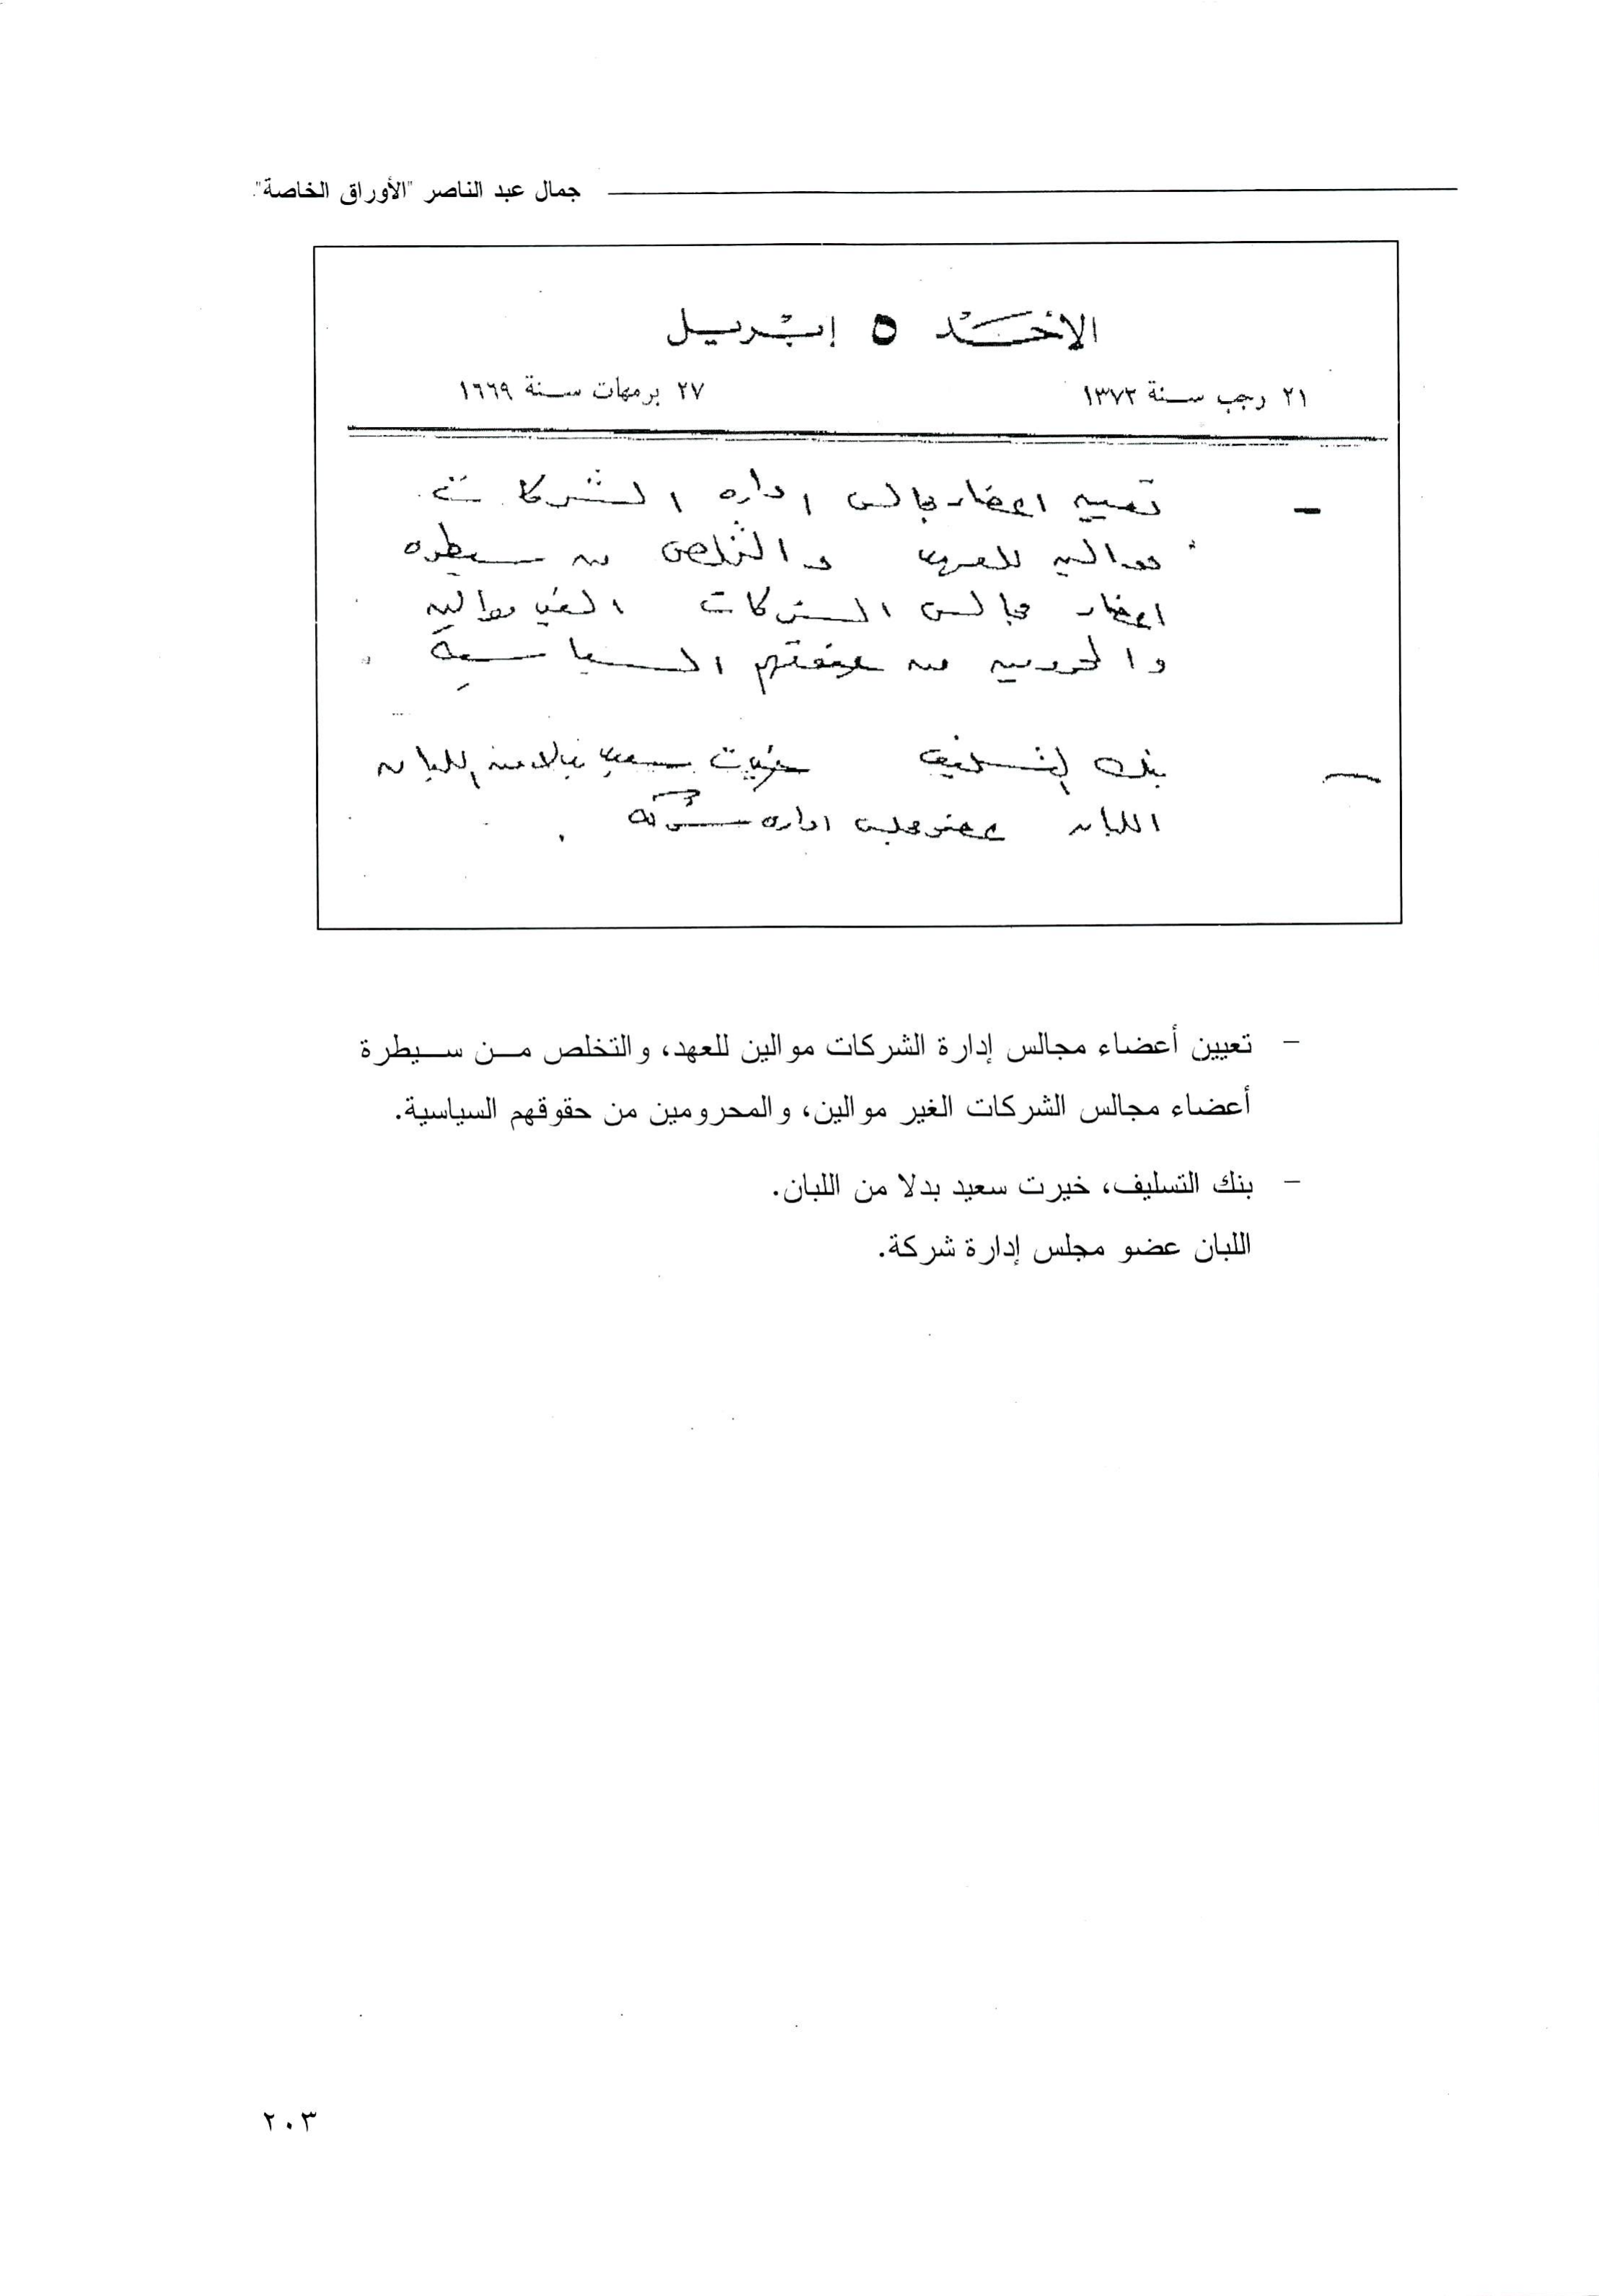 جمال عبد الناصر "الأوراق الخاصة"
الأحد ٥ إبريل
٢١ رجب سنة ١٣٧٢
٢٧ برمهات سنة ١٦٦٩
- تعيين اعضاء مجالس اداره الشركات
موالين للعهد والتخلص من سيطره
اعضاء مجالس الشركات الغير موالين
والمحرومين من حقوقهم السياسية .
- بنك التسليف خيرت سعيد بدلا من اللبان
اللبان عضو مجلس اداره شركه .
- تعيين أعضاء مجالس إدارة الشركات موالين للعهد، والتخلص مـن سـيطرة
أعضاء مجالس الشركات الغير موالين، والمحرومين من حقوقهم السياسية.
- بنك التسليف، خيرت سعيد بدلا من اللبان.
اللبان عضو مجلس إدارة شركة.
٢٠٣